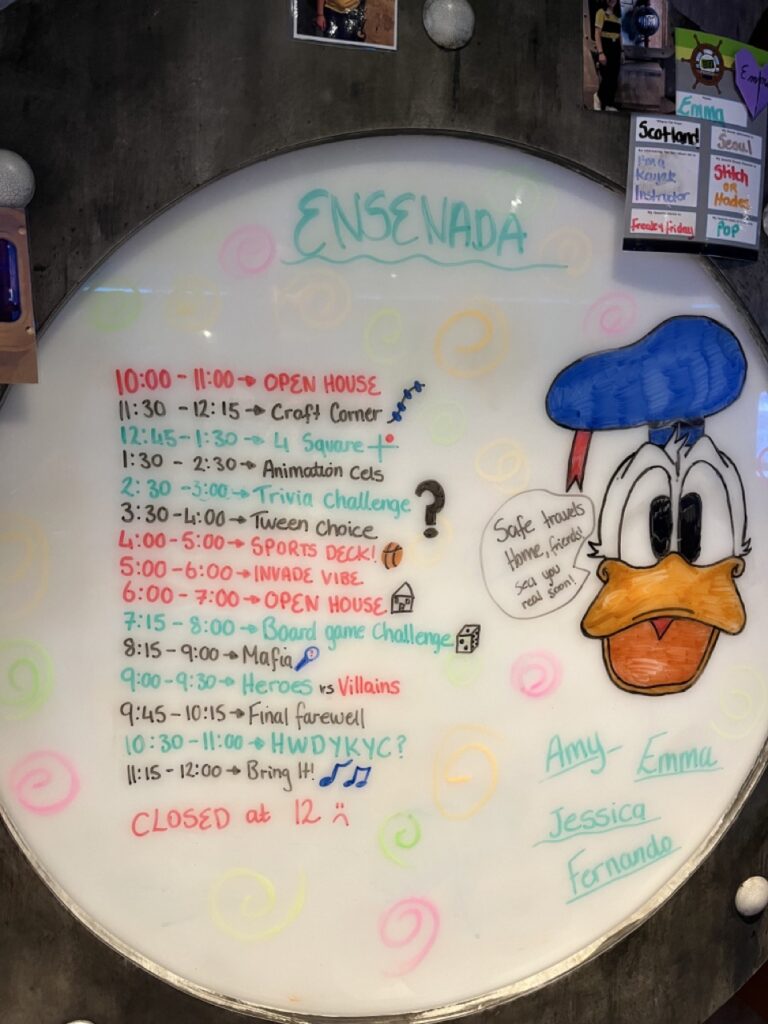 ENSENADA
10:00 - 11:00 → OPEN HOUSE
11:30 - 12:15 → Craft Corner
12:45 - 1:30 → 4 Square
1:30 - 2:30 → Animation Cels
2:30 - 3:00 → Trivia Challenge
3:30 - 4:00 → Tween Choice
?
4:00 - 5:00 → SPORTS DECK!
5:00 - 6:00 → INVADE VIBE
6:00 - 7:00 → OPEN HOUSE
7:15 - 8:00 → Board game Challenge
8:15 - 9:00 → Mafia
9:00 - 9:30 → Heroes vs Villains
9:45 - 10:15 → Final farewell
10:30 - 11:00 → HWDYKYC?
11:15 - 12:00 → Bring It!
CLOSED at 12
Safe travels
Home, friends!
sea you
real soon!
Amy-
Emma
Jessica
Fernando
Emma
Scotland
Seoul
I'm a
Kayak
Instructor
Stitch
or
Hades
Freaky Friday
Pop